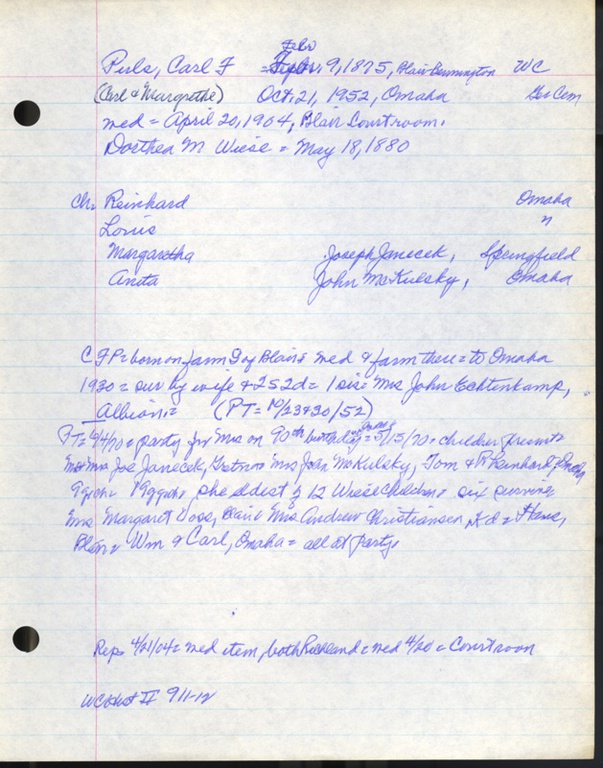 Febr
Puls, Carl F = 9, 1875, Blair-Bennington WC
(Carl & Margrethe) Oct. 21, 1952, Omaha Ger Cem
med = April 20, 1904, Blair Courtroom.
Dorthea M Wiese = May 18, 1880
Ch. Reinhard Omaha
Louis "
Margaretha Joseph Janecek, Springfield
Anita John McKulsky, Omaha
CFP = born on farm S of Blair & med & farm there = to Omaha
1930 = sur by wife & 2S 2d = 1 sis = Mrs John Echtenkamp,
Albion = (PT = 10/23 & 30/52)
PT = 6/4/70 = party for Mrs on 90th birthday = 5/15/70 = children present =
Mr & Mrs Joe Janecek, Mrs John McKulsky, Tom & Reinhard,
9 gch = 19 ggch = she eldest of 12 Wiese children = six surviving
Mrs. Margaret Voss, Blair & Mrs. Andrew Christiansen, Ed =
Blair = Wm & Carl, Omaha = all at party.
Rep = 4/21/04 = med item, both Richland = med 4/20 = Courtroom
WC Hist II 911-12